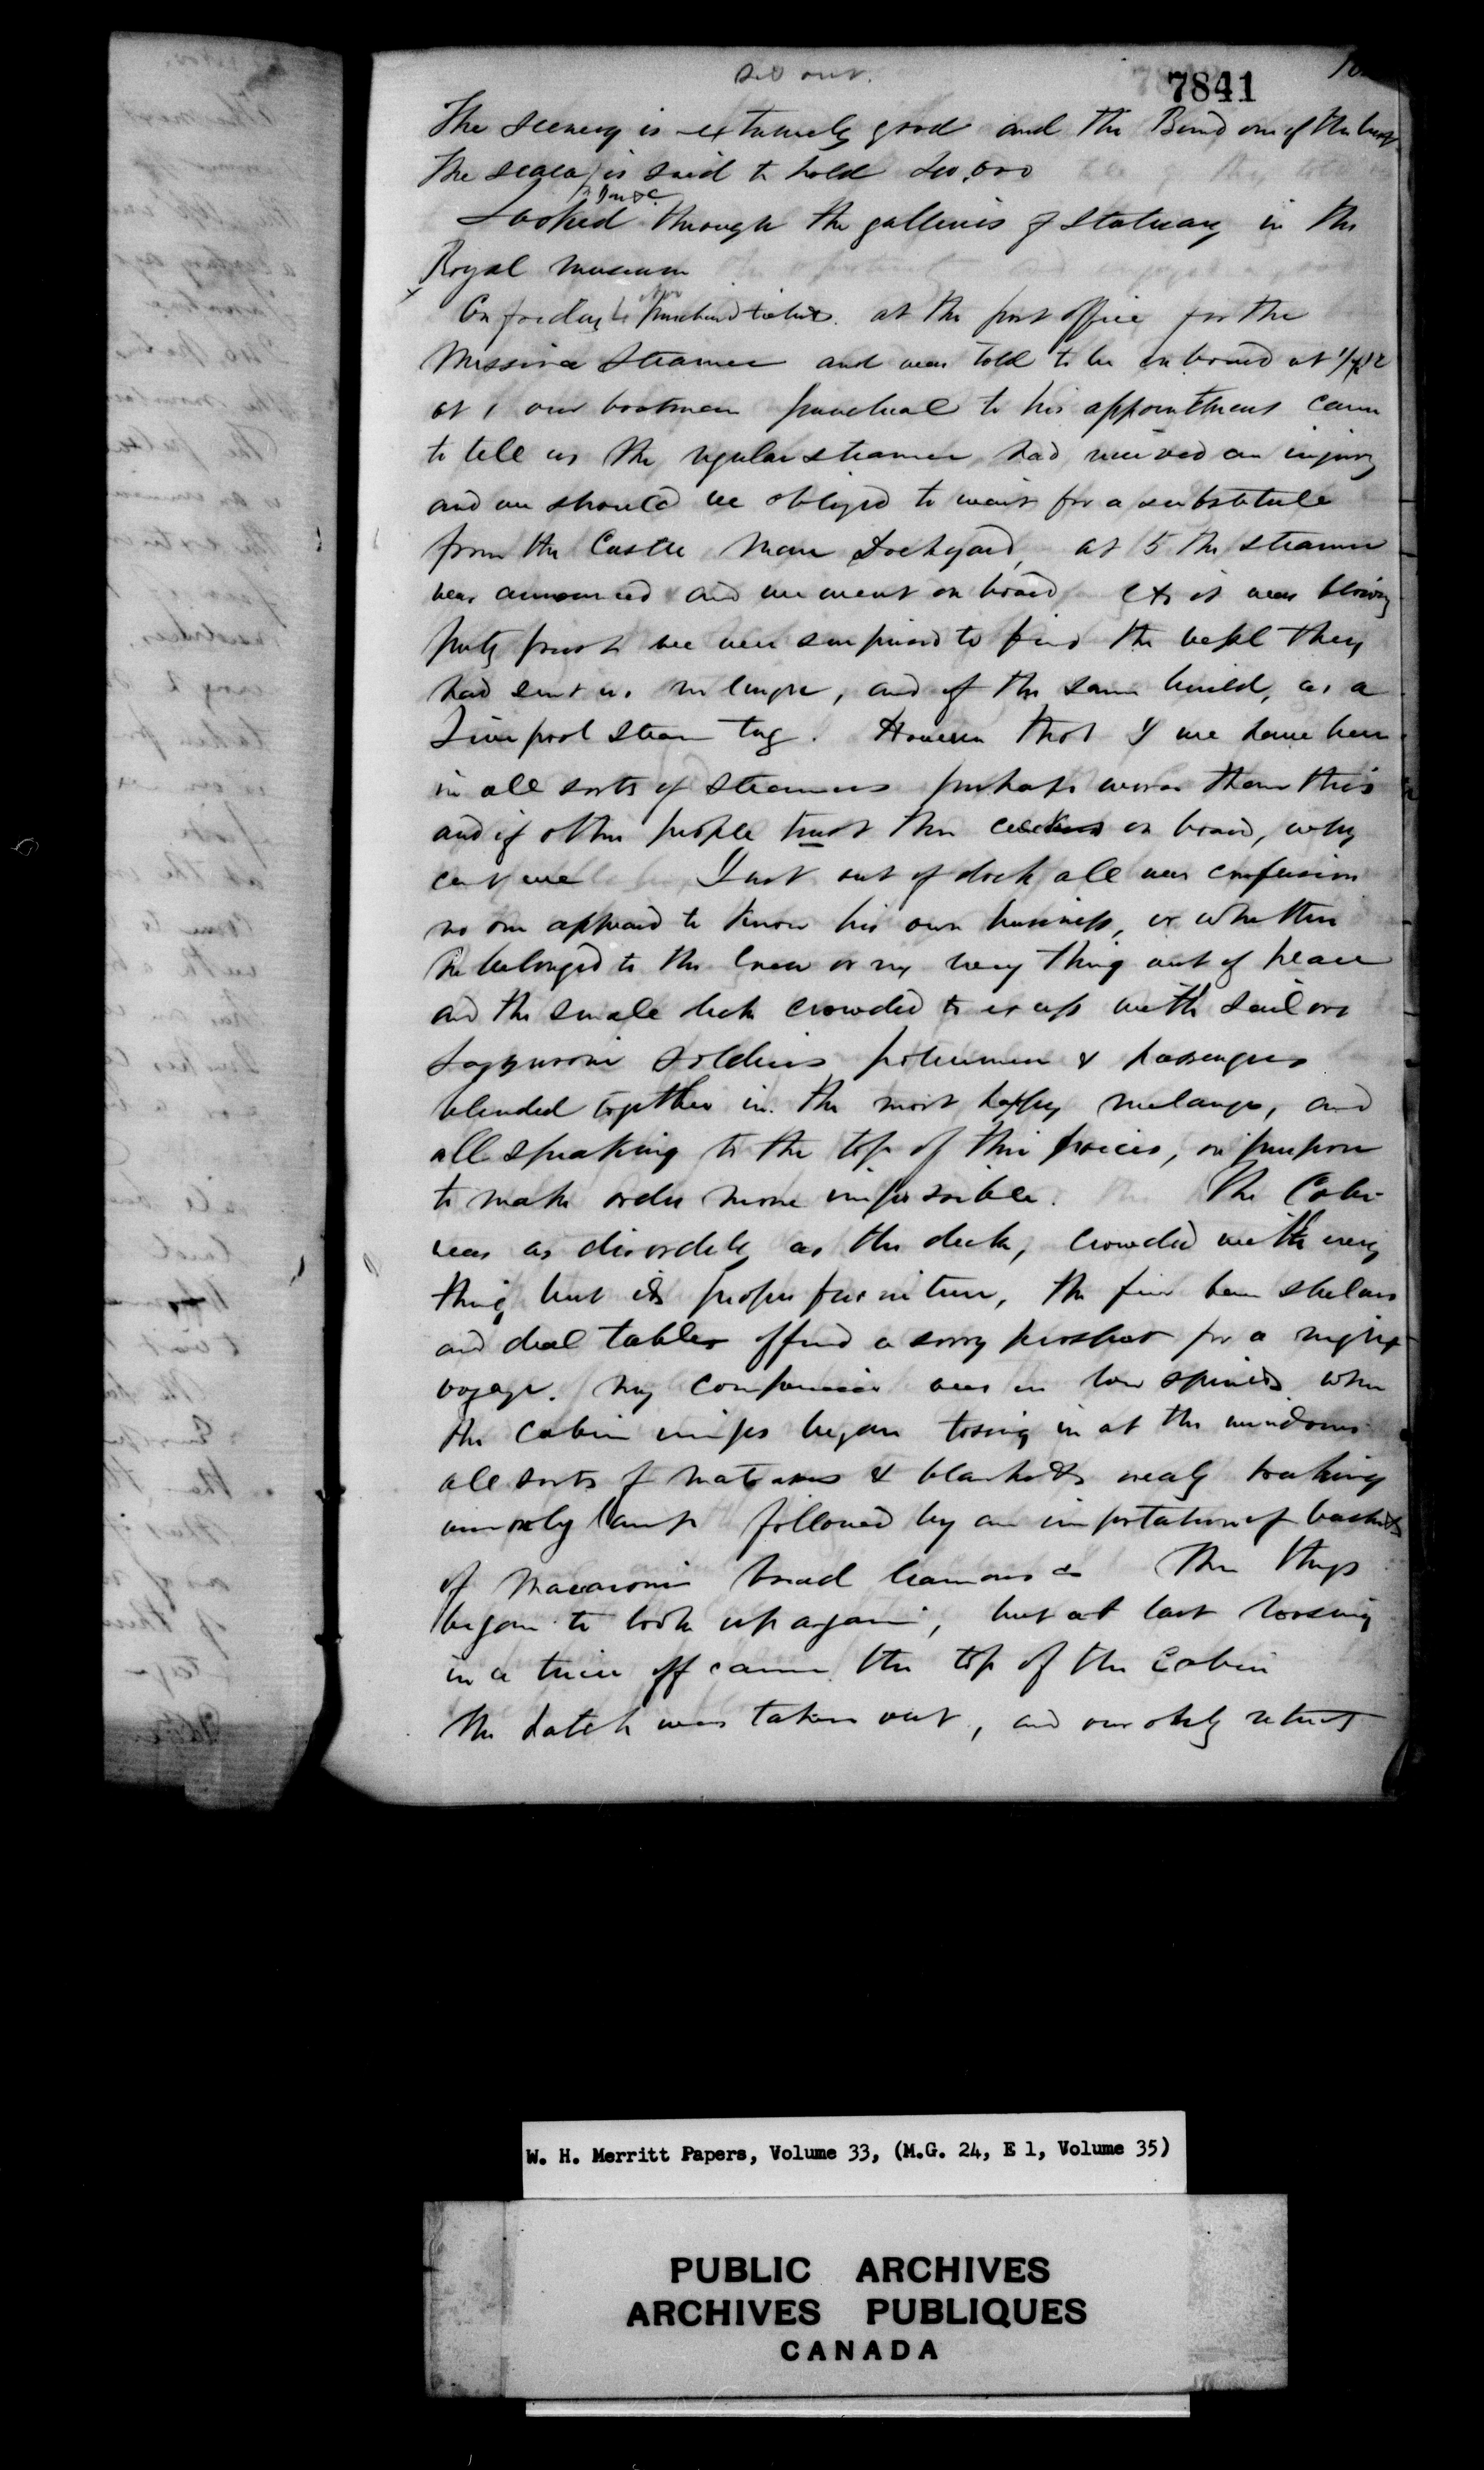 7841
The Scenery is extremely good and the Band one of the best
The scala is said to hold
Looked through the galleries of Statuary in the
Royal Museum
On friday at the post office for the
Messina Steamer and was told to be on board at 1/2 12
at 1 our boatman punctual to his appointment came
to tell us the regular steamer had received an injury
and we should be obliged to wait for a substitute
from the Castle Mare Dockyard, at 5 the steamer
was announced and we went on board As it was blowing
prety fresh we were surprised to find the vessel they
had sent us no larger, and of the same build, as a
Liverpool Steam tug. However thot I we have been
in all sorts of steamers perhaps worse than this
and if other people trust on board, why
cant we Just out of dock all was confusion
no one appeard to know his own business, or whether
he belonged to the Crew or no every thing out of place
and the small deck crowded to excess with sailors
Lazzaroni Soldiers policemen & passengers
blended together in the most happy melange, and
all speaking to the top of their voices, on purpose
to make order more impossible. The Cabin
was as disorderly as the deck, crowded with every
thing but its proper furniture, the few bare shelves
and deal tables offered a sorry prospect for a nights
voyage. My companion was in low spirits when
the Cabin imps began tosing in at the windows
all sorts of matrasses & blankets nearly breaking
our only lamp followed by an importation of baskets
of Macaroni bread &c Then things
began to look up again, but at last
in a trice off came the top of the Cabin
the hatch was taken out, and our only retreat
W. H. Merritt Papers, Volume 33, (M.G. 24, E 1, Volume 35)
PUBLIC ARCHIVES
ARCHIVES PUBLIQUES
CANADA